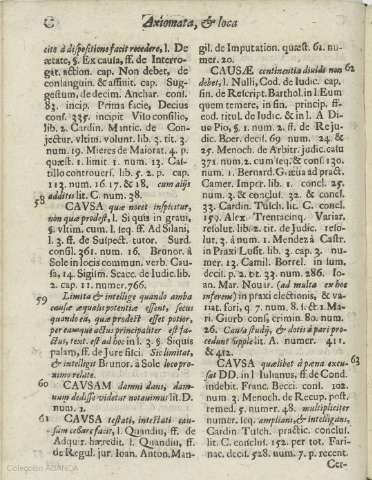 C Axiomata, & loca
cito à dispositione facit recedere, l. De
ætate, §. Ex causa, ff. de Interro-
gat. action. cap. Non debet, de
consanguin. & affinit. cap. Sug-
gestum, de decim. Anchar. cons.
83. incip. Prima facie, Decius
cons. 335. incipit Viso consilio,
lib. 2. Cardin. Mantic. de Con-
jectur. vltim. volunt. lib. 3. tit. 3.
num. 19. Mieres de Maiorat. 4. p.
quæst. 1. limit. 1. num. 13. Cas-
tillo controuers. lib. 5. 2. p. cap.
113. num. 16. 17. & 18. cum alijs
additis lit. C. num. 38.
58 CAVSA quæ movet inspicitur,
non quæ prodest, l. Si quis in graui,
§. vltim. cum l. seq. ff. Ad Silani,
l. 3. ff. de Suspect. tutor. Surd.
consil. 361. num. 16. Brunor. à
Sole in locis commun. verb. Cau-
sa, 14. Sigism. Scacc. de Iudic. lib.
2. cap. 11. numer. 766.
59 Limita & intellige quando amba
causæ æqualis potentiæ essent, secus
quando ea, quæ prodest esset potior,
per eamque actus principaliter est fa-
ctus, text. est ad hoc in l. 3. §. Siquis
palam, ff. de Jure fisci. Sic limitat,
& intelligit Brunor. à Sole loco pro-
xime relate.
60 CAVSAM damni dans, dam-
num dedisse videtur notauimus lit. D.
num. 2.
61 CAVSA testati, intestati cau-
sam cessare facit, l. Quandiu, ff. de
Adquir. hæredit. l. Quandiu, ff.
de Regul. jur. Ioan. Anton. Man-
gil. de Imputation. quæst. 61. nu-
mer. 20.
CAUSÆ continentia diuidi non 62
debet, l. Nulli, Cod. de Iudic. cap.
fin. de Rescript. Barthol. in l. Eum
quem temere, in fin. princip. ff.
eod. titul. de Iudic. & in l. A Di-
uo Pio, §. 1. num. 2. ff. de Reju-
dic. Boer. decis. 69. num. 24. &
25. Menoch. de Arbitr. judic. casu
371. num. 2. cum seq. & cons. 130.
num. 1. Bernard. Græua ad pract.
Camer. Imper. lib. 1. concl. 25.
num. 3. & conclus. 32. & concl.
33. Cardin. Tulch. lit. C. concl.
159. Alex. Trentacinq. Variar.
resolut. lib. 2. tit. de Judic. reso-
lut. 3. à num. 1. Mendez à Castr.
in Praxi Lusit. lib. 3. cap. 3. nu-
mer. 13. Camil. Borrel. in sum.
decis. p. 2. tit. 33. num. 286. Io-
an. Mar. Novar. (ad multa ex hoc
inferens) in praxi electionis, & va-
riat. fori, q. 7. num. 8. 1. & t. Ma-
ri. Giurb. consil. crimin. 80. num.
26. Causa studij, & dotis à pari pro-
cedunt supple lit. A. numer. 411.
& 412.
CAUSA quælibet à pæna excu- 63
sat DD. in l. Iulianus, ff. de Cond.
indebit. Franc. Becci. cons. 102.
num. 3. Menoch. de Recup. post.
remed. 5. numer. 48. multipliciter
numer. seq. ampliant, & intelligunt,
Cardin. Tulch. practic. conclus.
lit. C. conclus. 152. per tot. Fari-
nac. decis. 528. num. 7. p. recent.
Cer-
Colección ABANCA